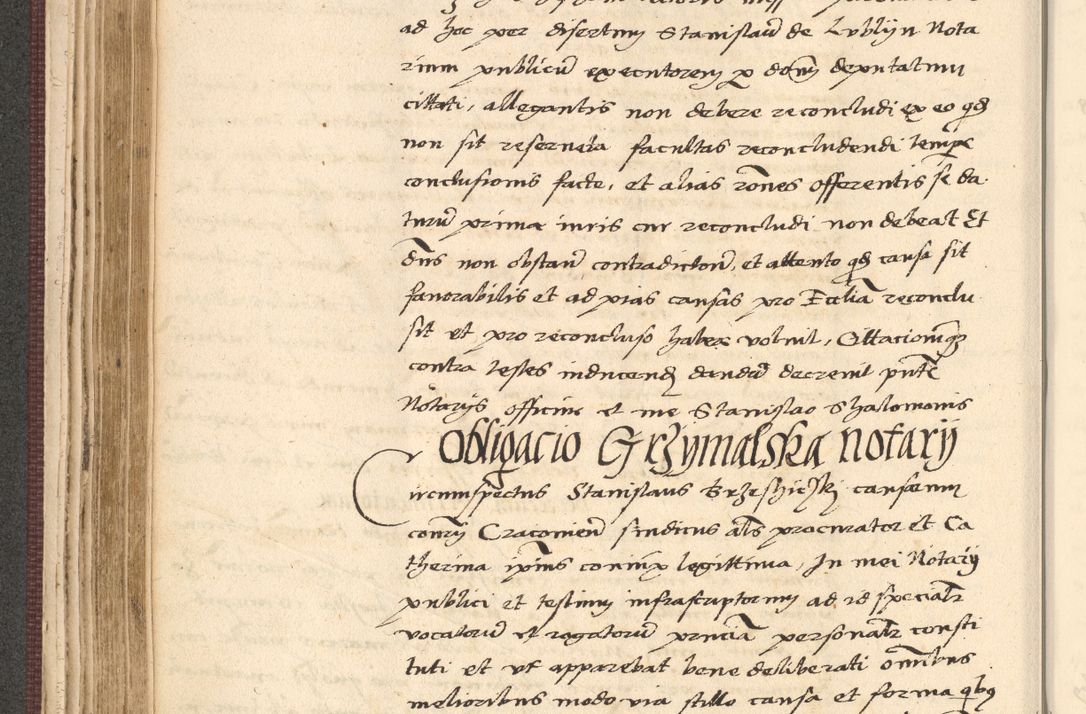 ad hoc per discretum Stanislaū de Lublyn Nota
rium publicū executorem p domī deputatum
cittati, allegantis non debere reconcludi ex eo qđ
non sit reservata facultas reconcludendi tempe
conclusionis facte, et alias rōnes offerentis se da
turū prima iuris cur reconcludi non debeat Et
dns non obstan̄ contradiction̄, et attento qđ causa sit
favorabilis et ad pias causas pro Eccliā reconclu
sit et pro reconcluso habere voluit, Cittacionemqꝫ
contra testes inducendꝫ dandā decrevit pn̄te
Notarijs officine et me Stanislao Shalomonis
Obligacio Grzymalska notarij
Circumspectus Stanislaus causarum
conrij Cracovien̄ sindicus als procurator et Ca
therina ipius coniunx legittima, In mei Notarij
publici et testium infrascriptorum ad id specialr
vocatorū et rogatorū pn̄ciā personalr consti
tuti et vt apparebat bene deliberati omībus
melioribus modo via stillo causa et forma qbꝫ